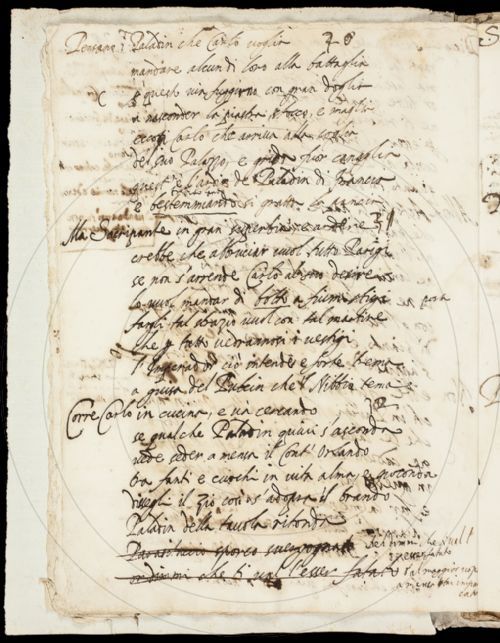 Pensano i Paladin che Carlo voglia 30
mandare alcun di loro alla battaglia
e questi van fuggirno con gran doglia
a nasconder la piastra, stocco, e maglia
eccoti Carlo che arriva alla soglia
del suo Palazzo, e grida fuor canaglia
quest' è l'ardir de Paladin di Francia
e bestemmiando si gratta la pancia
Ma Sacripante in gran superbia 31
che abbruciar vuol tutto Parigi
se non s'arrende Carlo
lo vuol mandar di botto a fiumi stigi
fargli tal vuol con tal martire
che p tutto vedrannosi i vestigi
l'Imperador ciò intende e forte trema
a guisa del Pulcin che 'l Nibbio tema
Corre Carlo in cucina, e va cercando 32
se qualche Paladin quivi s'asconda
vede seder a mensa il Cont' Orlando
tra fanti e cuochi in vita alma, e gioconda
dissegli il Zio così s'adopra il brando
Paladin della tavola ritonda
sporco
che ti val l'esser fatato